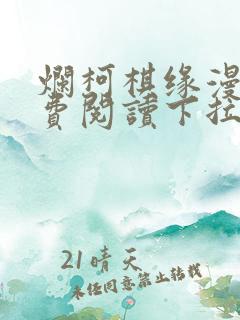 爛柯棋缘漫
費閱讀下拉
21晴天
未经同意禁止转载